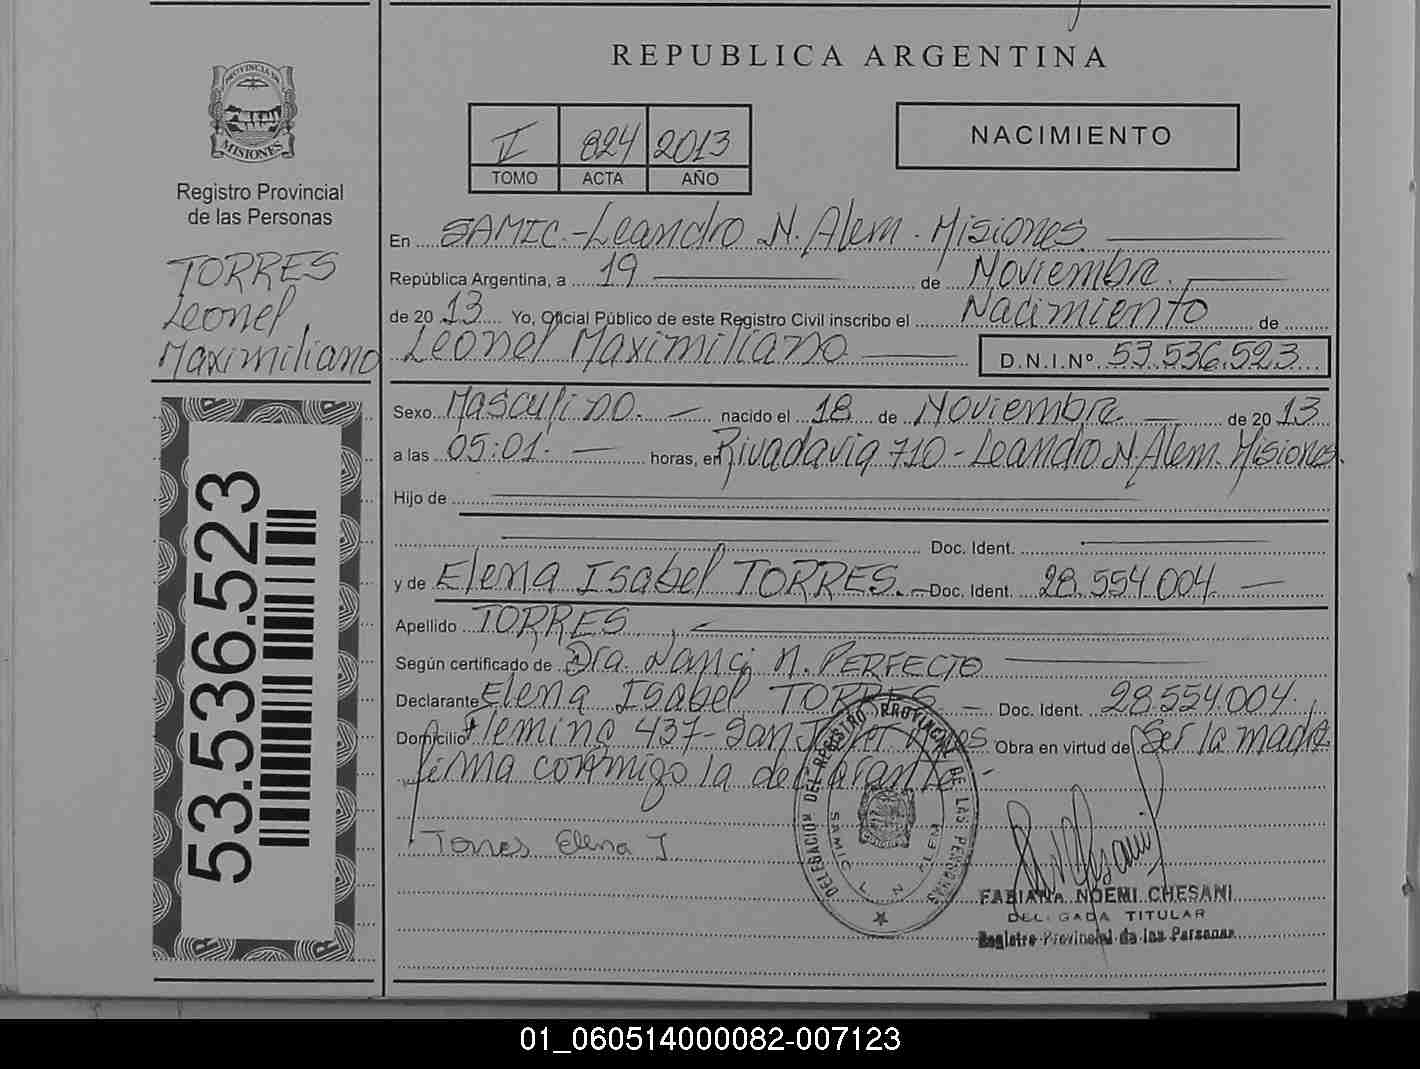 REPUBLICA ARGENTINA
PROVINCIA DE
MISIONES
Registro Provincial
de las Personas
TORRES
Leonel
Maximiliano
53.536.523
II 824 2013
TOMO ACTA AÑO
NACIMIENTO
En SAMIC.-Leandro N. Alem. Misiones
República Argentina, a 19 de Noviembre.
de 20 13 Yo, Oficial Público de este Registro Civil inscribo el Nacimiento de
Leonel Maximiliano D.N.I.Nº 53.536.523
Sexo Masculino. nacido el 18 de Noviembre de 20 13
a las 05:01. horas, en Rivadavia 710 - Leandro N. Alem. Misiones.
Hijo de
Doc. Ident.
y de Elena Isabel TORRES.- Doc. Ident. 28.554.004.
Apellido TORRES
Según certificado de Dra. Nanci N. PERFECTO
Declarante Elena Isabel TORRES - Doc. Ident. 28.554.004.
Domicilio Fleming 437- San Javier Obra en virtud de Ser la madre
firma conmigo la declarante -
Torres Elena I.
DELEGACIÓN DEL REGISTRO PROVINCIAL DE LAS PERSONAS
SAMIC L. N. ALEM
FABIANA NOEMI CHESANI
DELEGADA TITULAR
Registro Provincial de las Personas
01_060514000082-007123